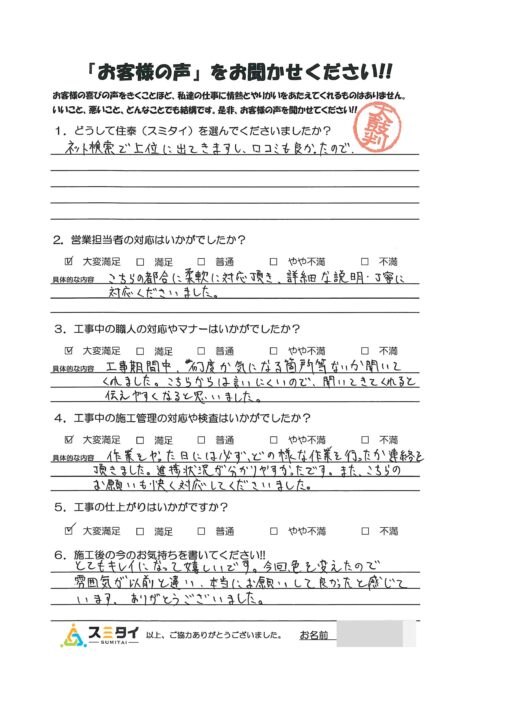 「お客様の声」をお聞かせください!!
お客様の喜びの声をきくことほど、私達の仕事に情熱とやりがいをあたえてくれるものはありません。
いいこと、悪いこと、どんなことでも結構です。是非、お客様の声を聞かせてください!!
太鼓判
1．どうして住泰（スミタイ）を選んでくださいましたか？
ネット検索で上位に出てきますし、口コミも良かったので、
2．営業担当者の対応はいかがでしたか？
☑ 大変満足 □ 満足 □ 普通 □ やや不満 □ 不満
具体的な内容 こちらの都合に柔軟に対応頂き、詳細な説明・丁寧に
対応くださいました。
3．工事中の職人の対応やマナーはいかがでしたか？
☑ 大変満足 □ 満足 □ 普通 □ やや不満 □ 不満
具体的な内容 工事期間中、何度か気になる箇所等ないか聞いて
くれました。こちらからは言いにくいので、聞いてきてくれると
伝えやすくなると思いました。
4．工事中の施工管理の対応や検査はいかがでしたか？
☑ 大変満足 □ 満足 □ 普通 □ やや不満 □ 不満
具体的な内容 作業をやった日には必ず、どの様な作業を行ったか連絡を
頂きました。進捗状況が分かりやすかったです。また、こちらの
お願いも快く対応してくださいました。
5．工事の仕上がりはいかがですか？
☑ 大変満足 □ 満足 □ 普通 □ やや不満 □ 不満
6．施工後の今のお気持ちを書いてください!!
とてもキレイになって嬉しいです。今回色を変えたので
雰囲気が以前と違い、本当にお願いして良かったと感じて
います。ありがとうございました。
スミタイ SUMITAI 以上、ご協力ありがとうございました。 お名前